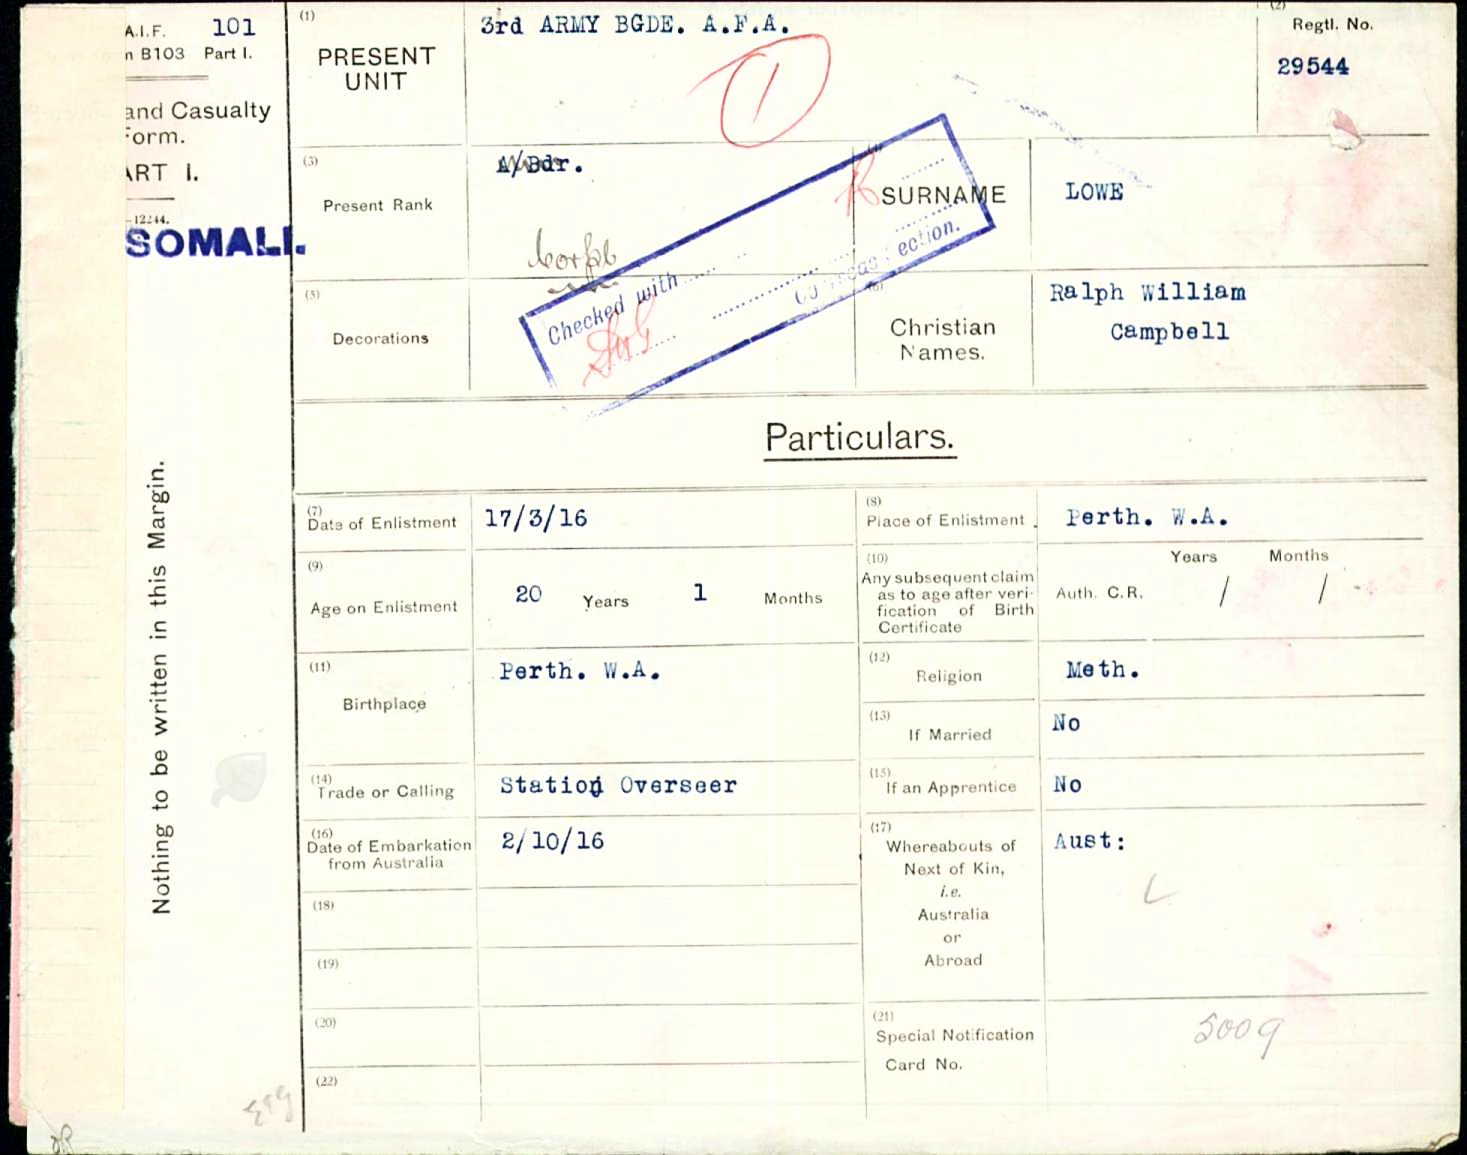 A.I.F. 101
B103 Part I.
and Casualty
Form.
PART I.
12244.
SOMALI.
Nothing to be written in this Margin.
(1)
PRESENT
UNIT
3rd ARMY BGDE. A.F.A.
1
(2)
Regtl. No.
29544
(3)
Present Rank
A/Bdr.
Corpl
SURNAME
LOWE
(5)
Decorations
Checked with
Christian
Names.
Ralph William
Campbell
Particulars.
(7)
Date of Enlistment
17/3/16
(8)
Place of Enlistment
Perth. W.A.
(9)
Age on Enlistment
20 Years 1 Months
(10)
Any subsequent claim
as to age after veri-
fication of Birth
Certificate
Years Months
Auth. C.R. / /
(11)
Birthplace
Perth. W.A.
(12)
Religion
Meth.
(13)
If Married
No
(14)
Trade or Calling
Station Overseer
(15)
If an Apprentice
No
(16)
Date of Embarkation
from Australia
2/10/16
(17)
Whereabouts of
Next of Kin,
i.e.
Australia
or
Abroad
Aust:
(18)
(19)
(20)
(21)
Special Notification
Card No.
5009
(22)